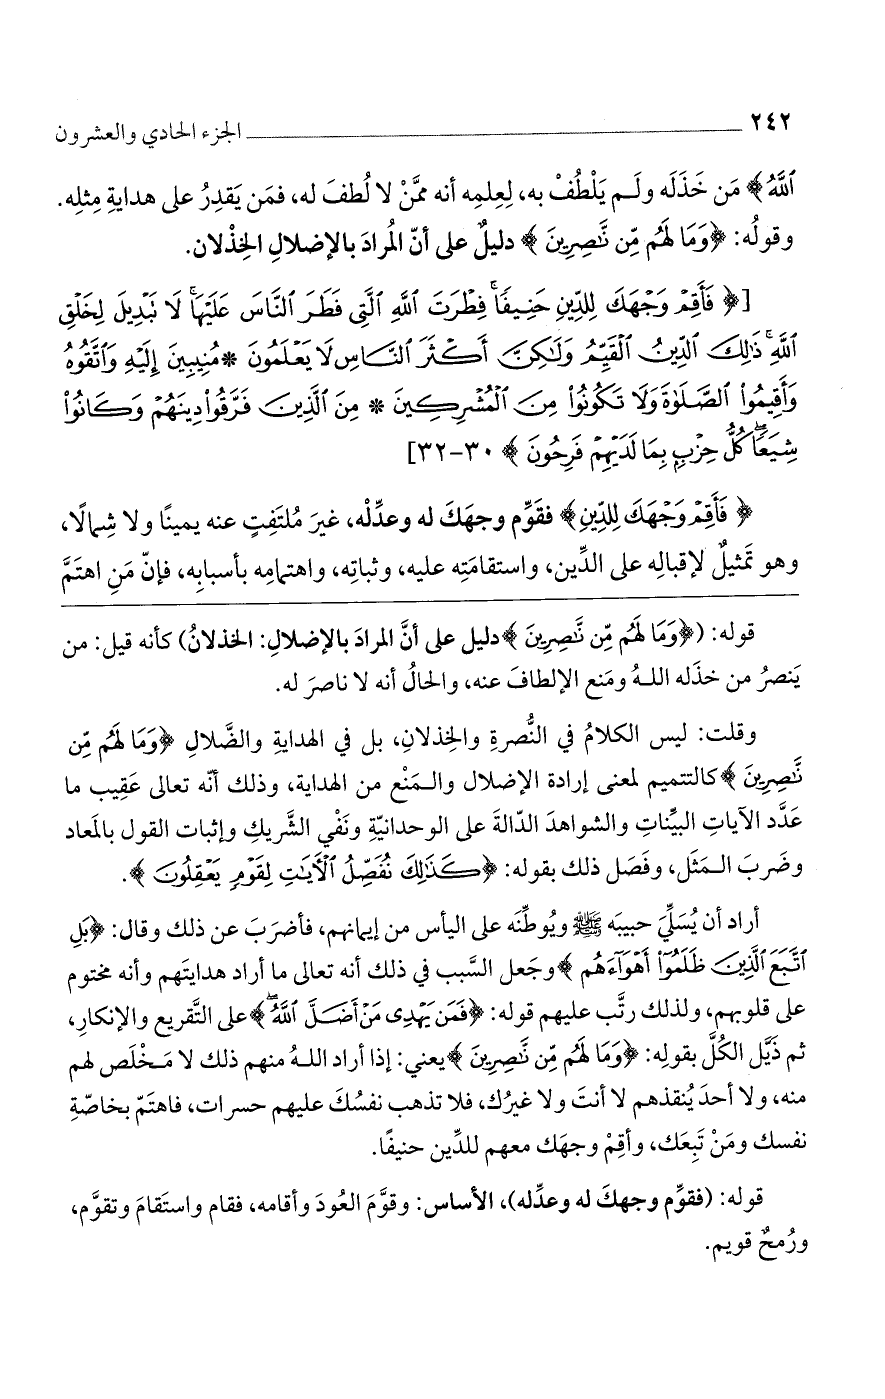 ٢٤٢ الجزء الحادي والعشرون
ٱللَّهُ﴾ مَن خَذَلَه ولَـم يَلْطُفْ به، لِعِلمِه أنه ممَّنْ لا لُطفَ له، فمَن يَقدِرُ على هدايةِ مِثلِه.
وقولُه: ﴿وَمَا لَهُم مِّن نَّٰصِرِينَ﴾ دليلٌ على أنّ المُرادَ بالإضلالِ الخِذْلان.
[﴿فَأَقِمْ وَجْهَكَ لِلدِّينِ حَنِيفًا ۚ فِطْرَتَ ٱللَّهِ ٱلَّتِى فَطَرَ ٱلنَّاسَ عَلَيْهَا ۚ لَا نَبْدِيلَ لِخَلْقِ
ٱللَّهِ ۚ ذَٰلِكَ ٱلدِّينُ ٱلْقَيِّمُ وَلَٰكِنَّ أَكْثَرَ ٱلنَّاسِ لَا يَعْلَمُونَ * مُنِيبِينَ إِلَيْهِ وَٱتَّقُوهُ
وَأَقِيمُوا۟ ٱلصَّلَوٰةَ وَلَا تَكُونُوا۟ مِنَ ٱلْمُشْرِكِينَ * مِنَ ٱلَّذِينَ فَرَّقُوا۟ دِينَهُمْ وَكَانُوا۟
شِيَعًا ۖ كُلُّ حِزْبٍۭ بِمَا لَدَيْهِمْ فَرِحُونَ﴾ ٣٠-٣٢]
﴿فَأَقِمْ وَجْهَكَ لِلدِّينِ﴾ فقَوِّم وجهَكَ له وعدِّلْه، غيرَ مُلتَفِتٍ عنه يمينًا ولا شِمالًا،
وهو تَمثيلٌ لإقبالِه على الدِّين، واستقامَتِه عليه، وثباتِه، واهتمامِه بأسبابِه، فإنّ مَنِ اهتَمَّ
قوله: (﴿وَمَا لَهُم مِّن نَّٰصِرِينَ﴾ دليل على أنَّ المرادَ بالإضلالِ: الخذلانُ) كأنه قيل: من
يَنصرُ من خذَله اللـهُ ومَنع الإلطافَ عنه، والحالُ أنه لا ناصرَ له.
وقلت: ليس الكلامُ في النُّصرةِ والخِذلانِ، بل في الهدايةِ والضَّلالِ ﴿وَمَا لَهُم مِّن
نَّٰصِرِينَ﴾ كالتتميم لمعنى إرادة الإضلال والـمَنْع من الهداية، وذلك أنّه تعالى عَقِيب ما
عَدَّد الآياتِ البيِّناتِ والشواهدَ الدّالةَ على الوحدانيّةِ ونَفْي الشَّريكِ وإثبات القول بالمَعاد
وضَربَ الـمَثَل، وفَصَل ذلك بقوله: ﴿كَذَٰلِكَ نُفَصِّلُ ٱلْأَيَٰتِ لِقَوْمٍ يَعْقِلُونَ﴾.
أراد أن يُسَلِّيَ حبيبَه ﷺ ويُوطِّنَه على اليأس من إيمانهم، فأضرَبَ عن ذلك وقال: ﴿بَلِ
ٱتَّبَعَ ٱلَّذِينَ ظَلَمُوٓا۟ أَهْوَآءَهُم﴾ وجَعل السَّبب في ذلك أنه تعالى ما أراد هدايتَهم وأنه مختوم
على قلوبهم، ولذلك رتَّب عليهم قوله: ﴿فَمَن يَهْدِى مَنْ أَضَلَّ ٱللَّهُ ۖ﴾ على التَّقريع والإنكارِ،
ثم ذَيَّل الكُلَّ بقولِه: ﴿وَمَا لَهُم مِّن نَّٰصِرِينَ﴾ يعني: إذا أراد اللـهُ منهم ذلك لا مَـخْلَص لهم
منه، ولا أحدَ يُنقذهم لا أنتَ ولا غيرُك، فلا تذهب نفسُكَ عليهم حسرات، فاهتَمّ بخاصّةِ
نفسك ومَنْ تَبِعَك، وأقِمْ وجهَك معهم للدِّين حنيفًا.
قوله: (فقوِّم وجهكَ له وعدِّله)، الأساس: وقوَّمَ العُودَ وأقامه، فقام واستَقامَ وتقوَّم،
ورُمحٌ قويم.